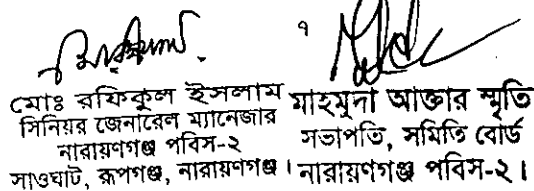 ৭
মোঃ রফিকুল ইসলাম
সিনিয়র জেনারেল ম্যানেজার
নারায়ণগঞ্জ পবিস-২
সাওঘাট, রূপগঞ্জ, নারায়ণগঞ্জ।
মাহমুদা আক্তার স্মৃতি
সভাপতি, সমিতি বোর্ড
নারায়ণগঞ্জ পবিস-২।